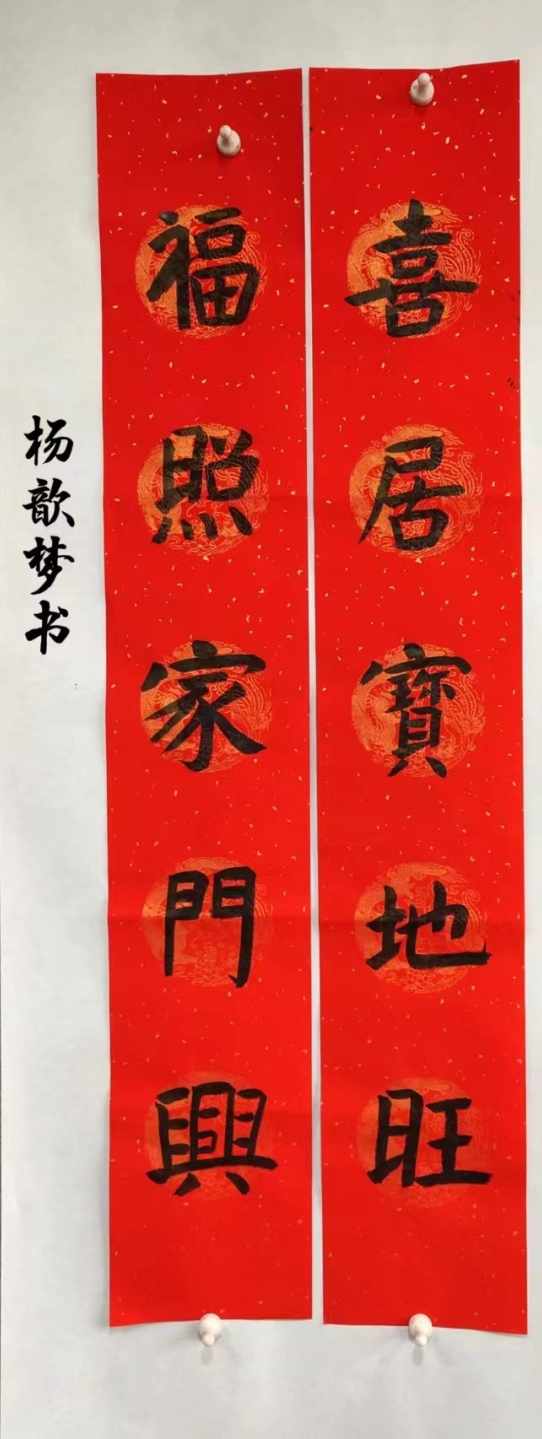 喜居寶地旺
福照家門興
杨歆梦书